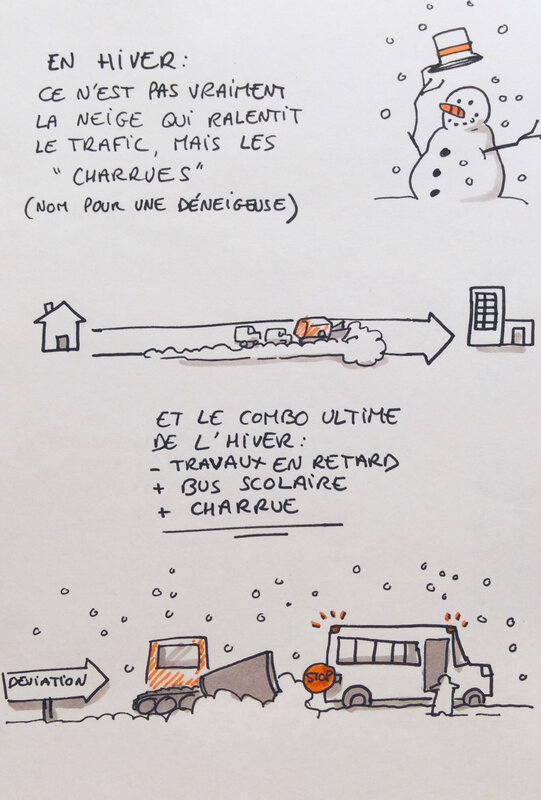 EN HIVER:
CE N'EST PAS VRAIMENT
LA NEIGE QUI RALENTIT
LE TRAFIC, MAIS LES
"CHARRUES"
(NOM POUR UNE DÉNEIGEUSE)
ET LE COMBO ULTIME
DE L'HIVER:
- TRAVAUX EN RETARD
+ BUS SCOLAIRE
+ CHARRUE
DEVIATION
STOP